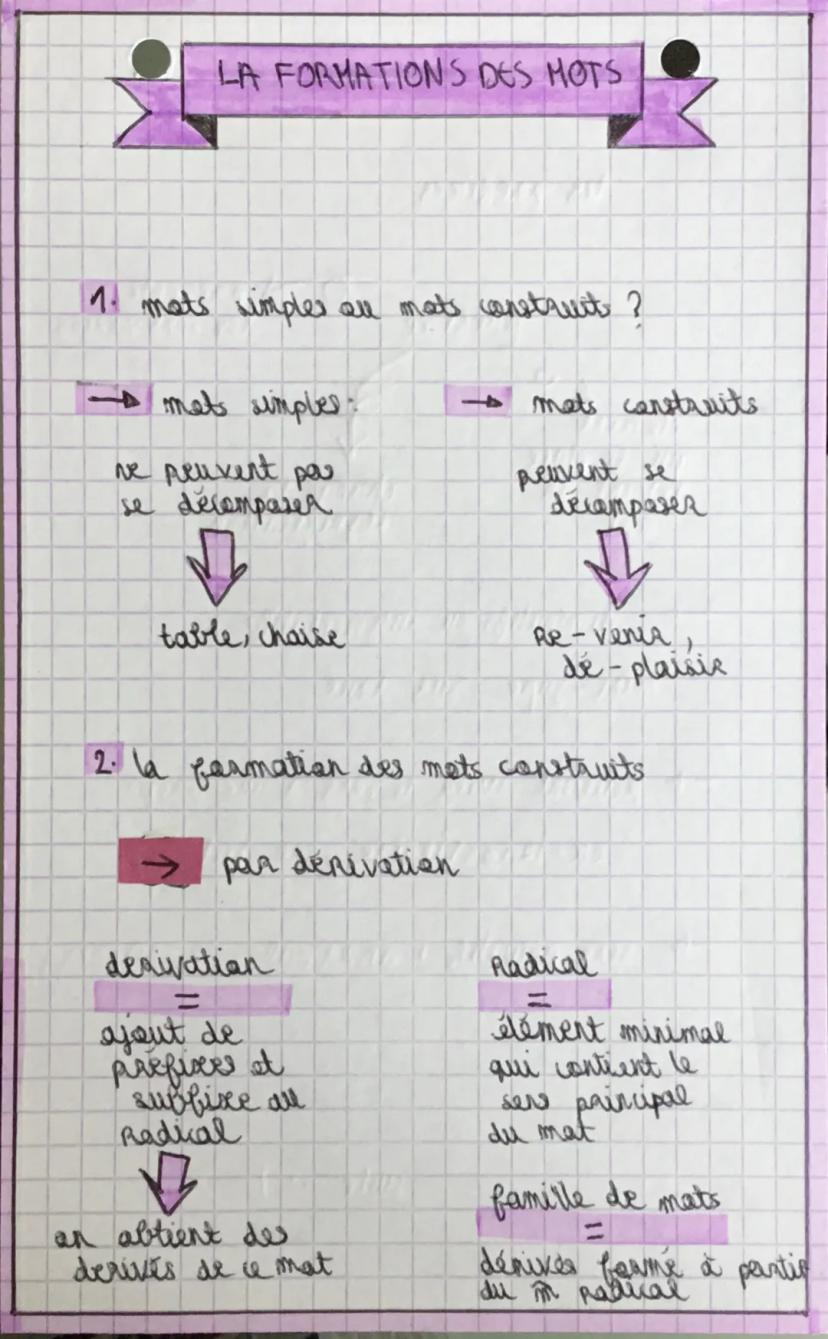 LA FORMATIONS DES MOTS
1. mots simples ou mots construits ?
→ mots simples :
ne peuvent pas
se décomposer
table, chaise
→ mots construits
peuvent se
décomposer
Re-venir,
dé-plaisir
2. la formation des mots construits
→ par dérivation
derivation
=
ajout de
préfixes et
suffixe au
Radical
on obtient des
derivés de ce mot
Radical
=
élément minimal
qui contient le
sens principal
du mot
famille de mots
=
dérivés formé à partir
du m̂ radical